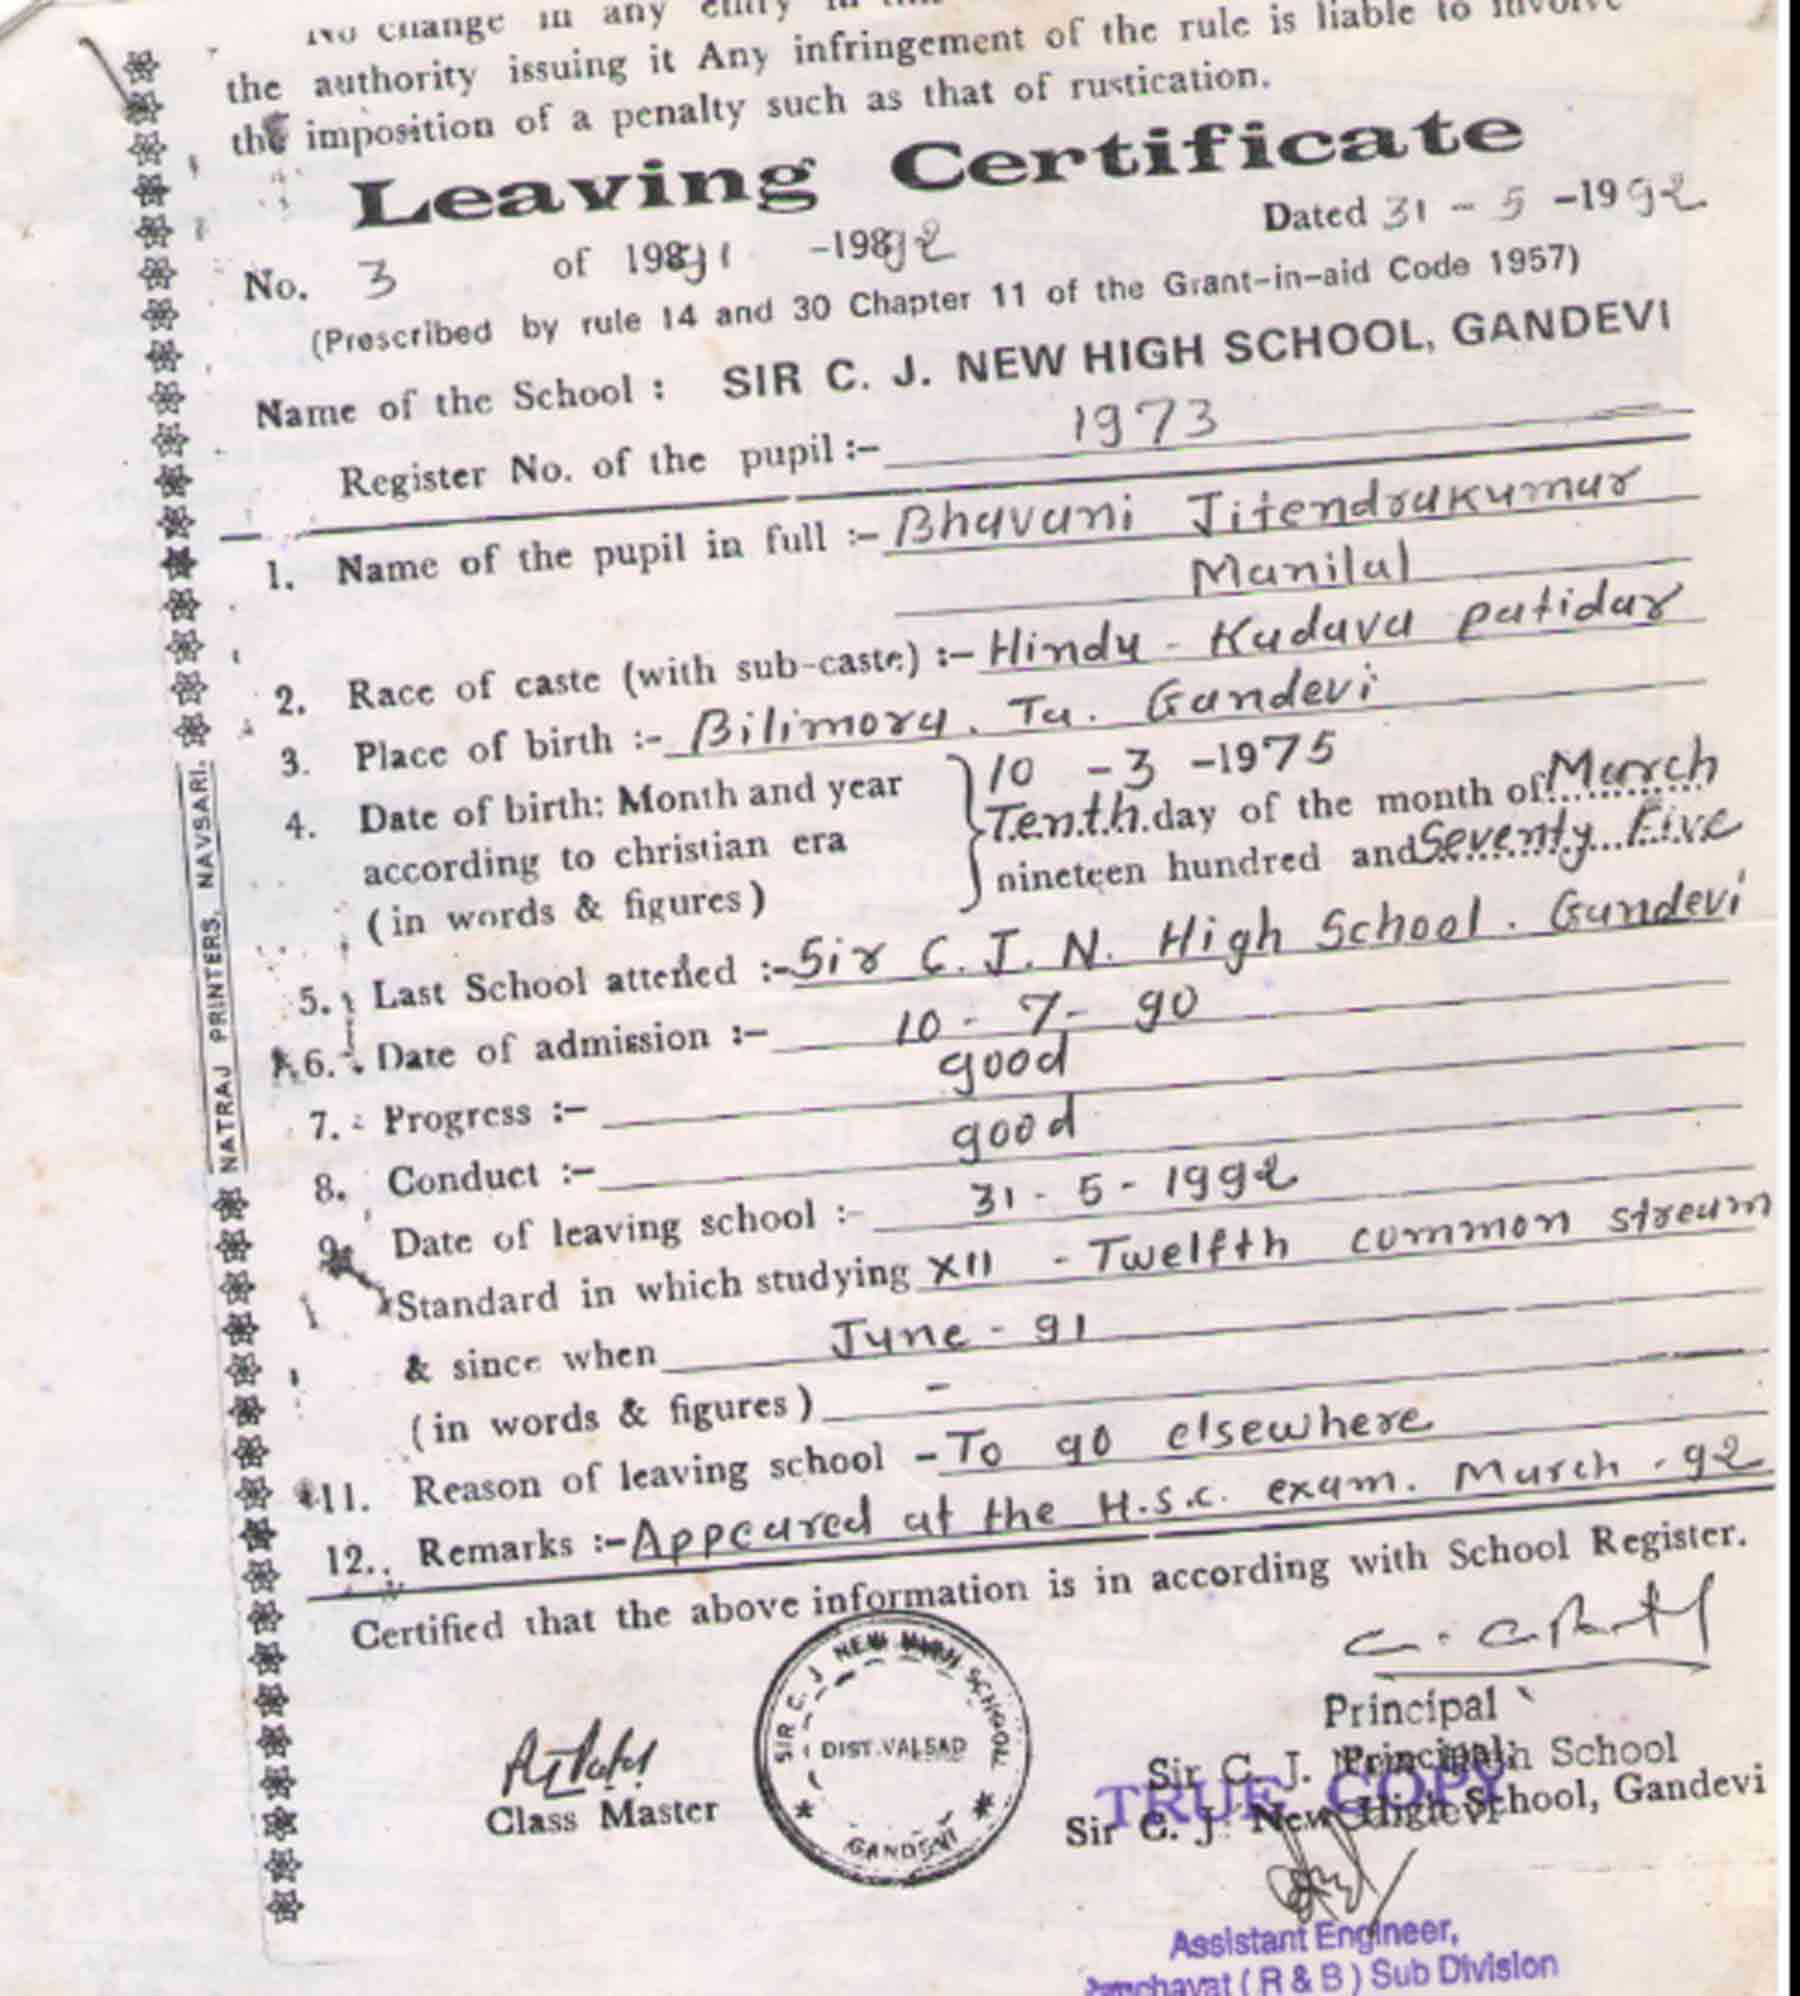 No change in any entry in
the authority issuing it Any infringement of the rule is liable to involve
the imposition of a penalty such as that of rustication.
Leaving Certificate
Dated 31 - 5 -1992
No. 3 of 19891 -19892
(Prescribed by rule 14 and 30 Chapter 11 of the Grant-in-aid Code 1957)
Name of the School : SIR C. J. NEW HIGH SCHOOL, GANDEVI
Register No. of the pupil :- 1973
1. Name of the pupil in full :- Bhavani Jitendrakumar
Manilal
2. Race of caste (with sub-caste) :- Hindu - Kadava patidar
3. Place of birth :- Bilimora. Ta. Gandevi
4. Date of birth: Month and year 10 -3 -1975
according to christian era Tenth day of the month of March
(in words & figures) nineteen hundred and Seventy Five
5. Last School attened :- Sir C. J. N. High School. Gandevi
6. Date of admission :- 10 - 7 - 90
7. Progress :- good
8. Conduct :- good
9. Date of leaving school :- 31 - 5 - 1992
Standard in which studying XII - Twelfth common stream
& since when June - 91
(in words & figures) -
11. Reason of leaving school - To go elsewhere
12. Remarks :- Appeared at the H.S.C. exam. March - 92
Certified that the above information is in according with School Register.
SIR C. J NEW HIGH SCHOOL
DIST. VALSAD
GANDEVI
Class Master
Principal
Principal
Sir C. J. New High School
Gandevi
Sir C. J. New High School, Gandevi
TRUE COPY
Assistant Engineer,
Panchayat ( R & B ) Sub Division
NATRAJ PRINTERS, NAVSARI.